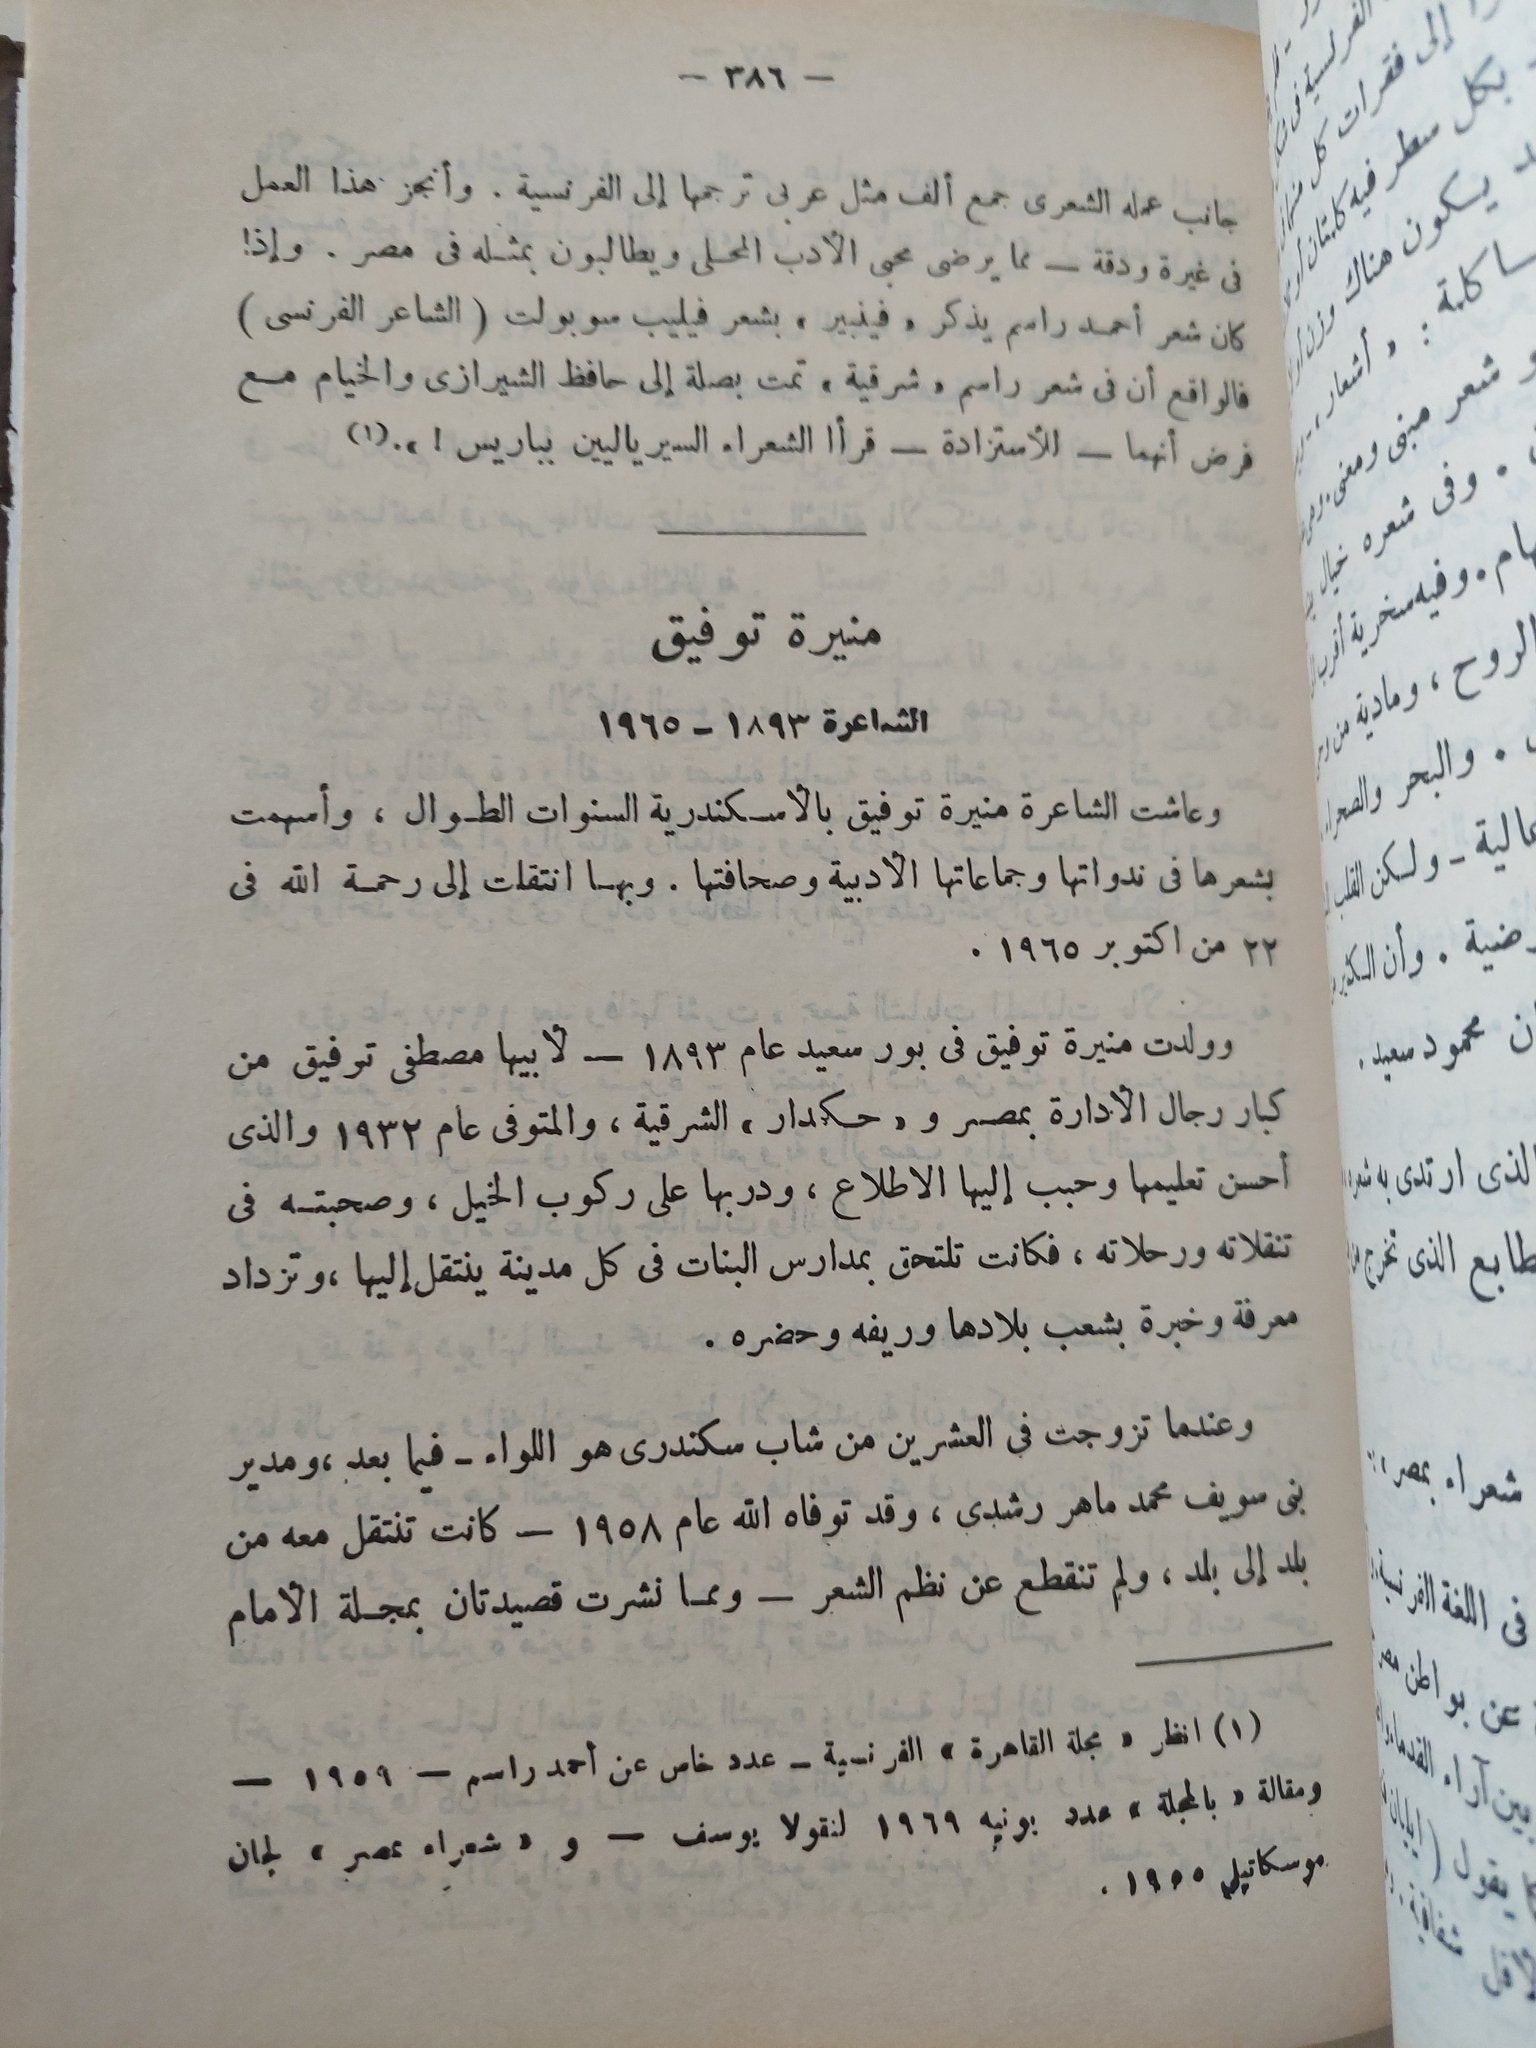 — ٣٨٦ —
جانب عمله الشعرى جمع ألف مثل عربى ترجمها إلى الفرنسية . وأنجز هذا العمل
فى غيرة ودقة — مما يرضى محبى الأدب المحلى ويطالبون بمثله فى مصر . وإذا
كان شعر أحمد راسم يذكر « فينبير » بشعر فيليب سوبولت ( الشاعر الفرنسى )
فالواقع أن فى شعر راسم « شرقية » تمت بصلة إلى حافظ الشيرازى والخيام مع
فرض أنهما — للأستزادة — قرأا الشعراء السيرياليين بباريس ! ».(١)
منيرة توفيق
الشاعرة ١٨٩٣ – ١٩٦٥
وعاشت الشاعرة منيرة توفيق بالأسكندرية السنوات الطوال ، وأسهمت
بشعرها فى ندواتها وجماعاتها الأدبية وصحافتها . وبها انتقلت إلى رحمة الله فى
٢٢ من اكتوبر ١٩٦٥ .
وولدت منيرة توفيق فى بور سعيد عام ١٨٩٣ — لأبيها مصطفى توفيق من
كبار رجال الأدارة بمصر و « حكمدار » الشرقية ، والمتوفى عام ١٩٣٢ والذى
أحسن تعليمها وحبب إليها الاطلاع ، ودربها على ركوب الخيل ، وصحبته فى
تنقلاته ورحلاته ، فكانت تلتحق بمدارس البنات فى كل مدينة ينتقل إليها ، وتزداد
معرفة وخبرة بشعب بلادها وريفه وحضره .
وعندما تزوجت فى العشرين من شاب سكندرى هو اللواء – فيما بعد ، ومدير
بنى سويف محمد ماهر رشدى ، وقد توفاه الله عام ١٩٥٨ — كانت تنتقل معه من
بلد إلى بلد ، ولم تنقطع عن نظم الشعر — ومما نشرت قصيدتان بمجلة الأمام
(١) انظر « مجلة القاهرة » الفرنسية – عدد خاص عن أحمد راسم — ١٩٥٩ —
ومقالة « بالمجلة » عدد يونيه ١٩٦٩ لنقولا يوسف — و « شعراء بمصر » لجان
موسكاتيلى ١٩٥٥ .
إلى فقرات كل
بكل سطر فيه كلمتان أو
يكون هناك وزن أو
كلمة : « أشعار
شعر مبنى ومعنى
. وفى شعره خيال
. وفيه سخرية أقرب
الروح ، ومادية من
. والبحر والصحراء
عالية – ولكن القلب
. وأن الكثير
محمود سعيد .
الذى ارتدى به
الذى تخرج
شعراء بمصر »
فى اللغة الفرنسية
عن بواطن
بين آراء القدماء
يقول (
شفافية